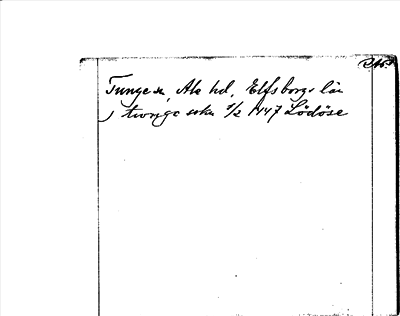 Tunge sn, Ale hd, Elfsborgs län
j twnge sokn 1/2 1447 Lödöse